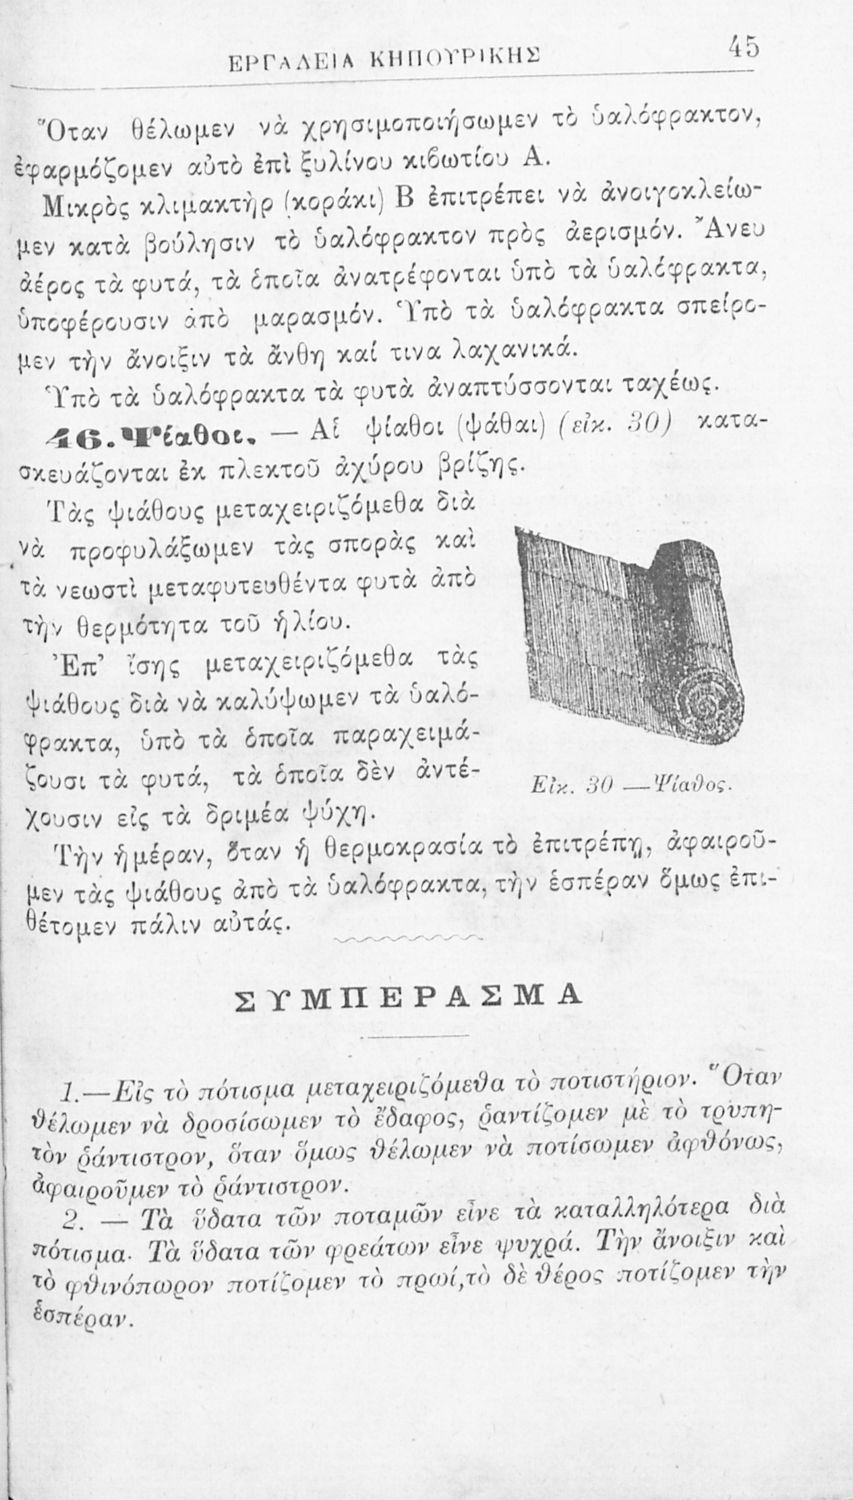 ΕΡΓΑΛΕΙΑ ΚΗΠΟΥΡΙΚΗΣ 45
Ὅταν θέλωμεν νὰ χρησιμοποιήσωμεν τὸ ὑαλόφρακτον,
ἐφαρμόζομεν αὐτὸ ἐπὶ ξυλίνου κιβωτίου Α.
Μικρὸς κλιμακτὴρ (κοράκι) Β ἐπιτρέπει νὰ ἀνοιγοκλείω-
μεν κατὰ βούλησιν τὸ ὑαλόφρακτον πρὸς ἀερισμόν. Ἄνευ
ἀέρος τὰ φυτά, τὰ ὁποῖα ἀνατρέφονται ὑπὸ τὰ ὑαλόφρακτα,
ὑποφέρουσιν ἀπὸ μαρασμόν. Ὑπὸ τὰ ὑαλόφρακτα σπείρο-
μεν τὴν ἄνοιξιν τὰ ἄνθη καί τινα λαχανικά.
Ὑπὸ τὰ ὑαλόφρακτα τὰ φυτὰ ἀναπτύσσονται ταχέως.
46. Ψίαθοι. — Αἱ ψίαθοι (ψάθαι) (εἰκ. 30) κατα-
σκευάζονται ἐκ πλεκτοῦ ἀχύρου βρίζης.
Τὰς ψιάθους μεταχειριζόμεθα διὰ
νὰ προφυλάξωμεν τὰς σπορὰς καὶ
τὰ νεωστὶ μεταφυτευθέντα φυτὰ ἀπὸ
τὴν θερμότητα τοῦ ἡλίου.
Ἐπ’ ἴσης μεταχειριζόμεθα τὰς
ψιάθους διὰ νὰ καλύψωμεν τὰ ὑαλό-
φρακτα, ὑπὸ τὰ ὁποῖα παραχειμά-
ζουσι τὰ φυτά, τὰ ὁποῖα δὲν ἀντέ-
χουσιν εἰς τὰ δριμέα ψύχη.
Εἰκ. 30 —Ψίαθος.
Τὴν ἡμέραν, ὅταν ἡ θερμοκρασία τὸ ἐπιτρέπῃ, ἀφαιροῦ-
μεν τὰς ψιάθους ἀπὸ τὰ ὑαλόφρακτα, τὴν ἑσπέραν ὅμως ἐπι-
θέτομεν πάλιν αὐτάς.
ΣΥΜΠΕΡΑΣΜΑ
1.—Εἰς τὸ πότισμα μεταχειριζόμεθα τὸ ποτιστήριον. Ὅταν
θέλωμεν νὰ δροσίσωμεν τὸ ἔδαφος, ῥαντίζομεν μὲ τὸ τρυπη-
τὸν ῥάντιστρον, ὅταν ὅμως θέλωμεν νὰ ποτίσωμεν ἀφθόνως,
ἀφαιροῦμεν τὸ ῥάντιστρον.
2. — Τὰ ὕδατα τῶν ποταμῶν εἶνε τὰ καταλληλότερα διὰ
πότισμα. Τὰ ὕδατα τῶν φρεάτων εἶνε ψυχρά. Τὴν ἄνοιξιν καὶ
τὸ φθινόπωρον ποτίζομεν τὸ πρωί, τὸ δὲ θέρος ποτίζομεν τὴν
ἑσπέραν.